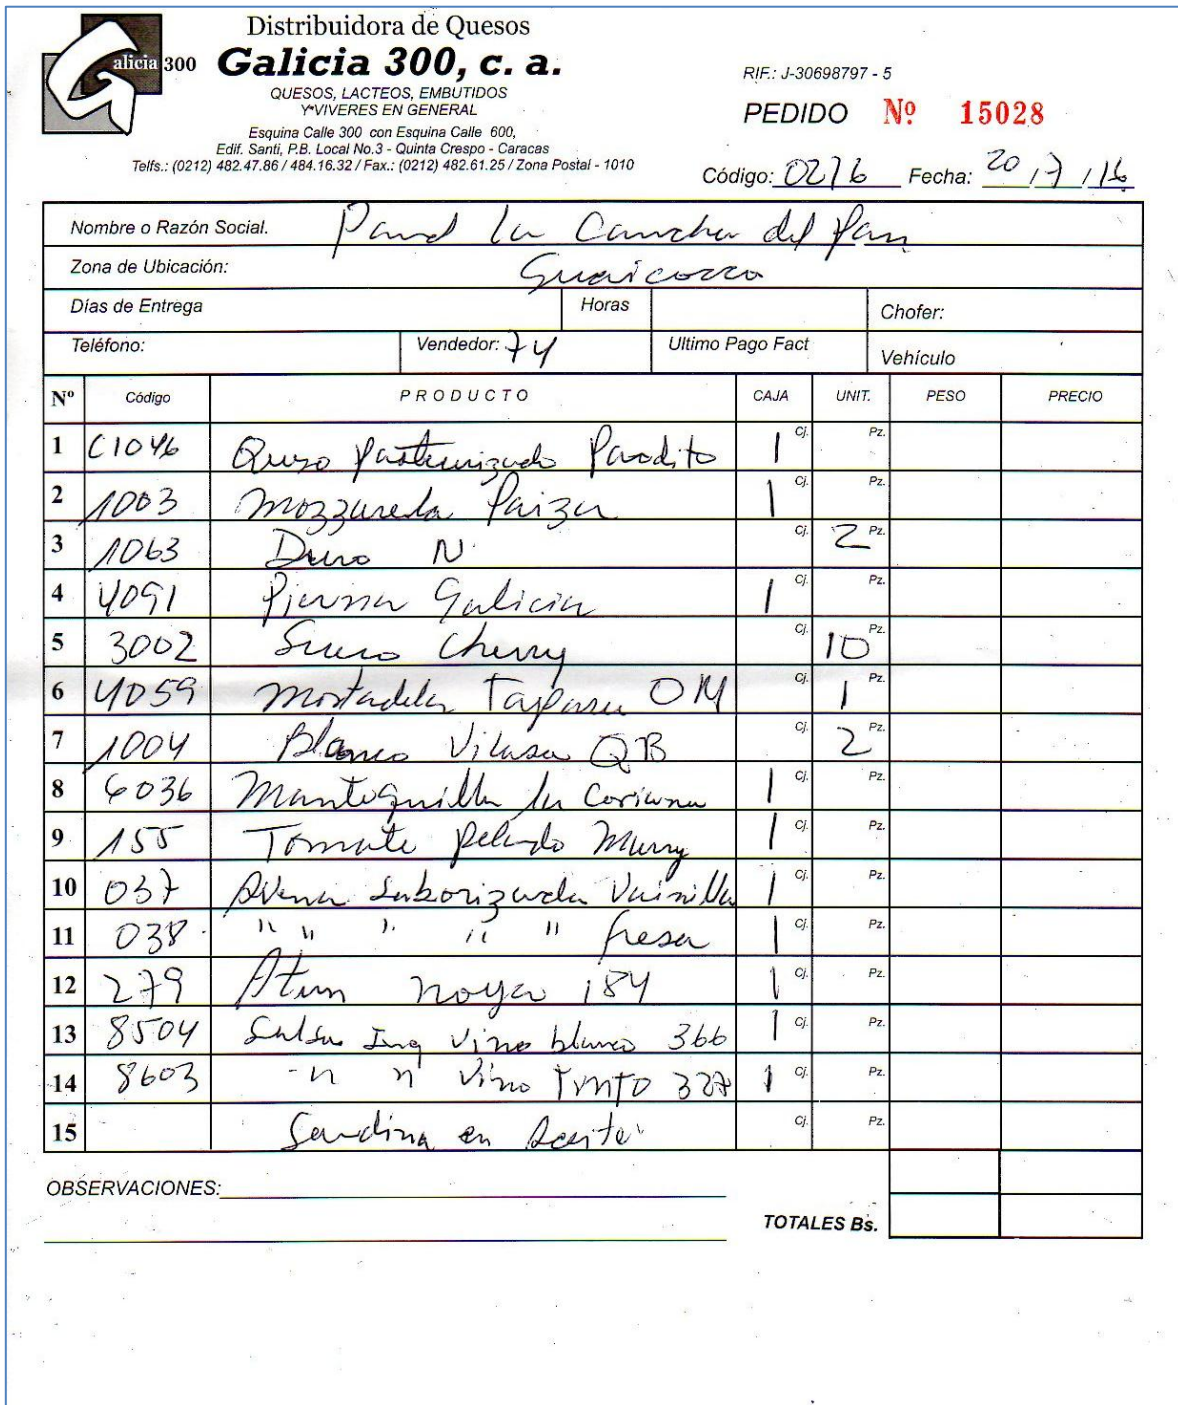 alicia 300
Distribuidora de Quesos
Galicia 300, c. a.
QUESOS, LACTEOS, EMBUTIDOS
Y VIVERES EN GENERAL
Esquina Calle 300 con Esquina Calle 600,
Edif. Santi, P.B. Local No.3 - Quinta Crespo - Caracas
Telfs.: (0212) 482.47.86 / 484.16.32 / Fax.: (0212) 482.61.25 / Zona Postal - 1010
RIF.: J-30698797 - 5
PEDIDO Nº 15028
Código: 0276 Fecha: 20/7/16
Nombre o Razón Social. Panad la Cancha del Pan
Zona de Ubicación: Guaicozco
Días de Entrega Horas Chofer:
Teléfono: Vendedor: 74 Ultimo Pago Fact Vehículo
Nº Código PRODUCTO CAJA UNIT. PESO PRECIO
1 C1046 Queso Pasteurizado 1 Cj. Pz.
2 1003 Mozzarella Paiza 1 Cj. Pz.
3 1063 Duro N Cj. 2 Pz.
4 4091 Pierna Galicia 1 Cj. Pz.
5 3002 Suero Cherry Cj. 10 Pz.
6 4059 Mortadela Tapara OM Cj. 1 Pz.
7 1004 Blanco Vilusa QB Cj. 2 Pz.
8 6036 Mantequilla la Coriana 1 Cj. Pz.
9 155 Tomate Pelado Mary 1 Cj. Pz.
10 037 Avena Saborizada Vainilla 1 Cj. Pz.
11 038 " " " " " fresa 1 Cj. Pz.
12 279 Atun 184 1 Cj. Pz.
13 8504 Salsa Ing Vino blanco 366 1 Cj. Pz.
14 8603 " " Vino Tinto 327 1 Cj. Pz.
15 Sardina en Aceite Cj. Pz.
OBSERVACIONES:
TOTALES Bs.